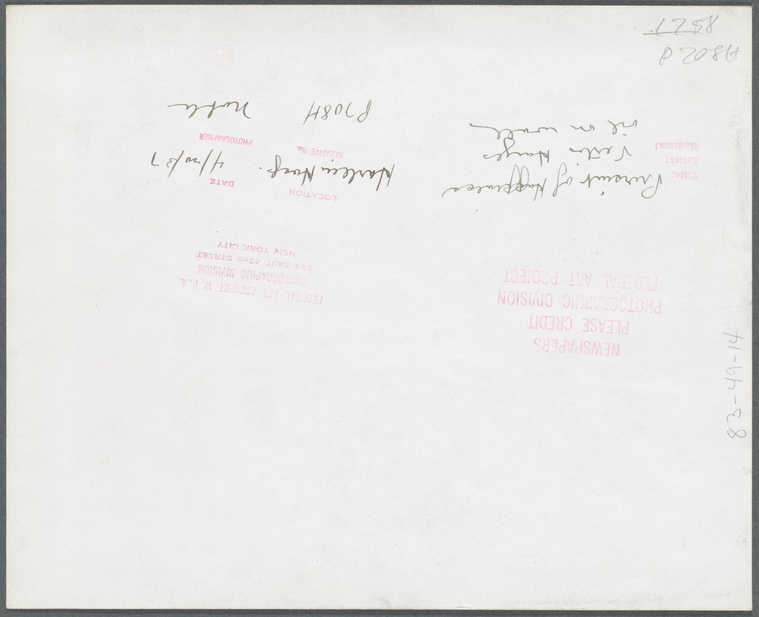 NEWSPAPERS
PLEASE CREDIT
PHOTOGRAPHIC DIVISION
FEDERAL ART PROJECT
Title: Pursuit of Happiness
Artist: Vertis Hayes
Medium: oil on wall
FEDERAL ART PROJECT W. P. A.
PHOTOGRAPHIC DIVISION
EAST 42nd STREET
NEW YORK CITY
LOCATION Harlem Hosp.
DATE 4/20/37
NEGATIVE No. P708H
PHOTOGRAPHER Noble
83-49-14